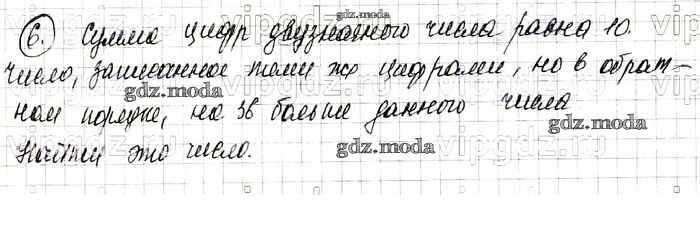 6. Сумма цифр двузначного числа равна 10.
Число, записанное теми же цифрами, но в обрат-
ном порядке, на 36 больше данного числа
Найти это число.
gdz.moda
gdz.moda
gdz.moda
gdz.moda
gdz.moda
vipgdz.ru
vipgdz.ru